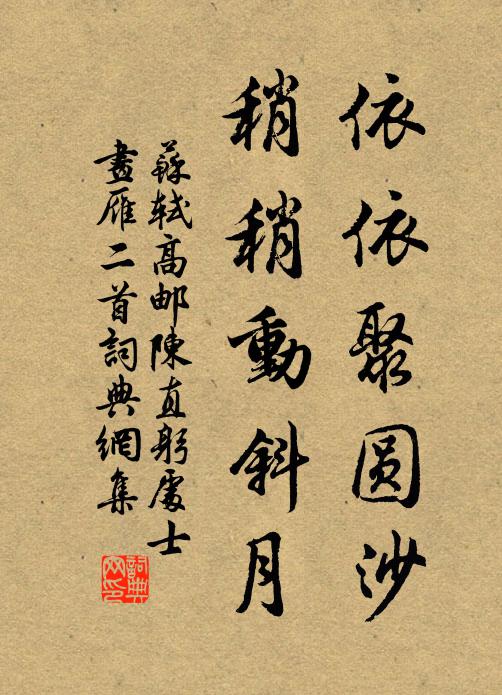 依依聚圆沙
稍稍動斜月
蘇軾高邮陳直躬處士
畫雁二首詞典網集
詞典
网印